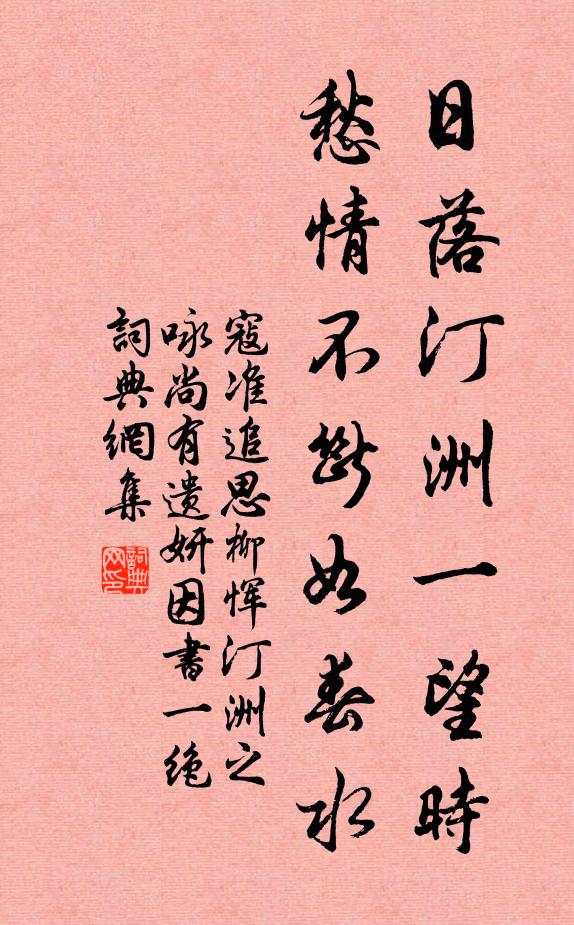 日落汀洲一望時
愁情不斷如春水
寇准追思柳恽汀洲之
咏尚有遗妍因書一绝
詞典網集
詞典网印